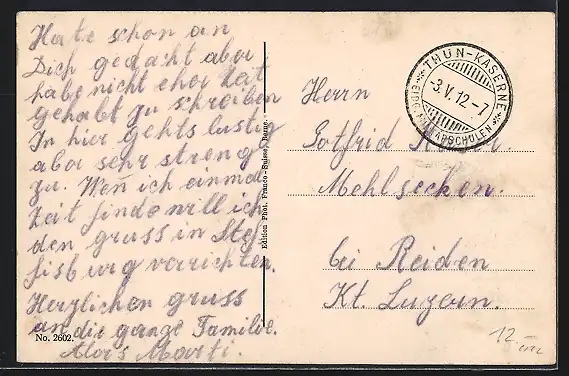 Hate schon an
Dich gedacht aber
habe nicht eher Zeit
gehabt zu schreiben
In hier gehts lustig
aber sehr streng
zu. Wen̄ ich einmal
Zeit finde will ich
den gruss in Stef
fisburg verichten.
Herzlichen gruss
an die ganze Familie.
Alois Marti.
No. 2602.
Edition Phot. Franco-Suisse, Berne.
THUN-KASERNE
-3.V.12-7
Herrn
Gotfrid
Mehlsecken.
bei Reiden
Kt. Luzern.
12